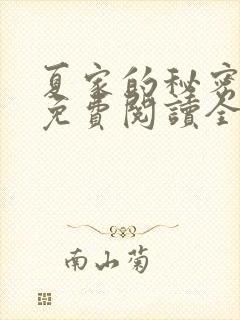 夏家的秘密
免費閱讀全
南山菊